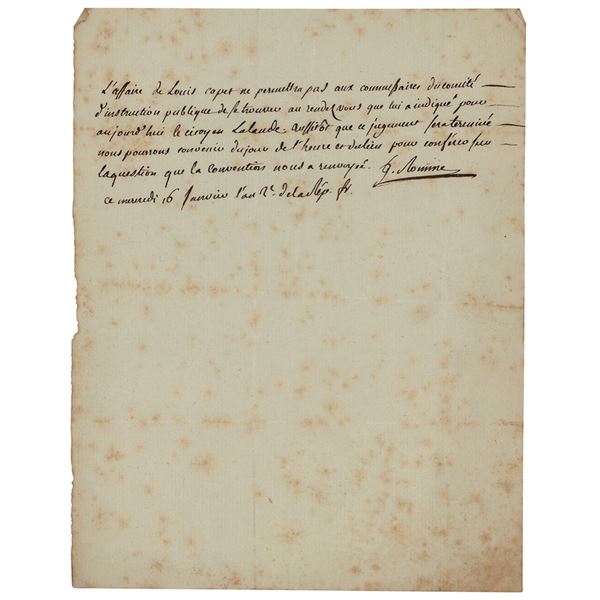 L'affaire de Louis capet ne permettra pas aux commissaires du comité
d'instruction publique de se trouver au rendez vous que lui a indiqué pour
aujourd'hui le citoyen Lalande. aussitôt que ce jugement sera terminé
nous pourrons convenir du jour de l'heure et du lieu pour conférer sur
la question que la convention nous a renvoyé. G. Romme
ce mercredi 16 Janvier l'an 2e. de la Rép. fr.